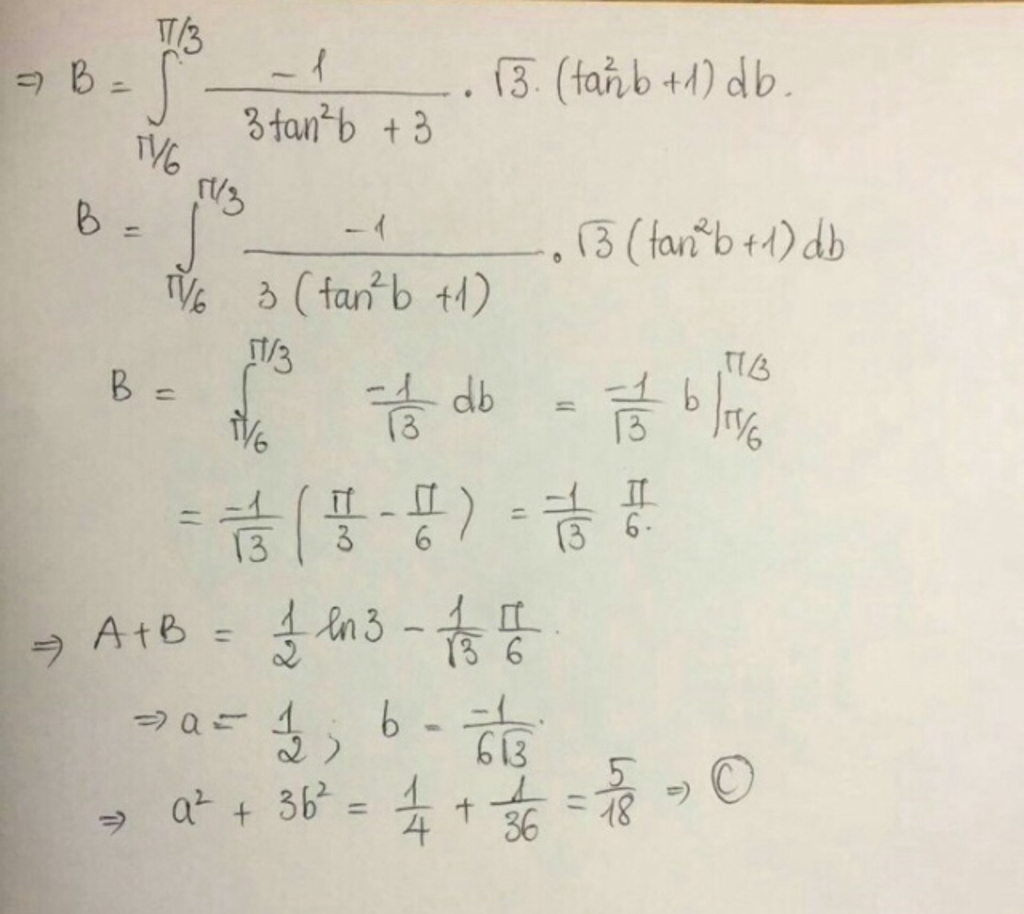 ⇒ B = ∫_{π/6}^{π/3} \frac{-1}{3tan²b + 3} . √3. (tan²b + 1) db.
B = ∫_{π/6}^{π/3} \frac{-1}{3(tan²b + 1)} . √3 (tan²b + 1) db
B = ∫_{π/6}^{π/3} \frac{-1}{√3} db = \frac{-1}{√3} b |_{π/6}^{π/3}
= \frac{-1}{√3} ( \frac{π}{3} - \frac{π}{6} ) = \frac{-1}{√3} \frac{π}{6}.
⇒ A + B = \frac{1}{2} ln3 - \frac{1}{√3} \frac{π}{6}.
⇒ a = \frac{1}{2} ; b = \frac{-1}{6√3}.
⇒ a² + 3b² = \frac{1}{4} + \frac{1}{36} = \frac{5}{18} ⇒ Ⓒ